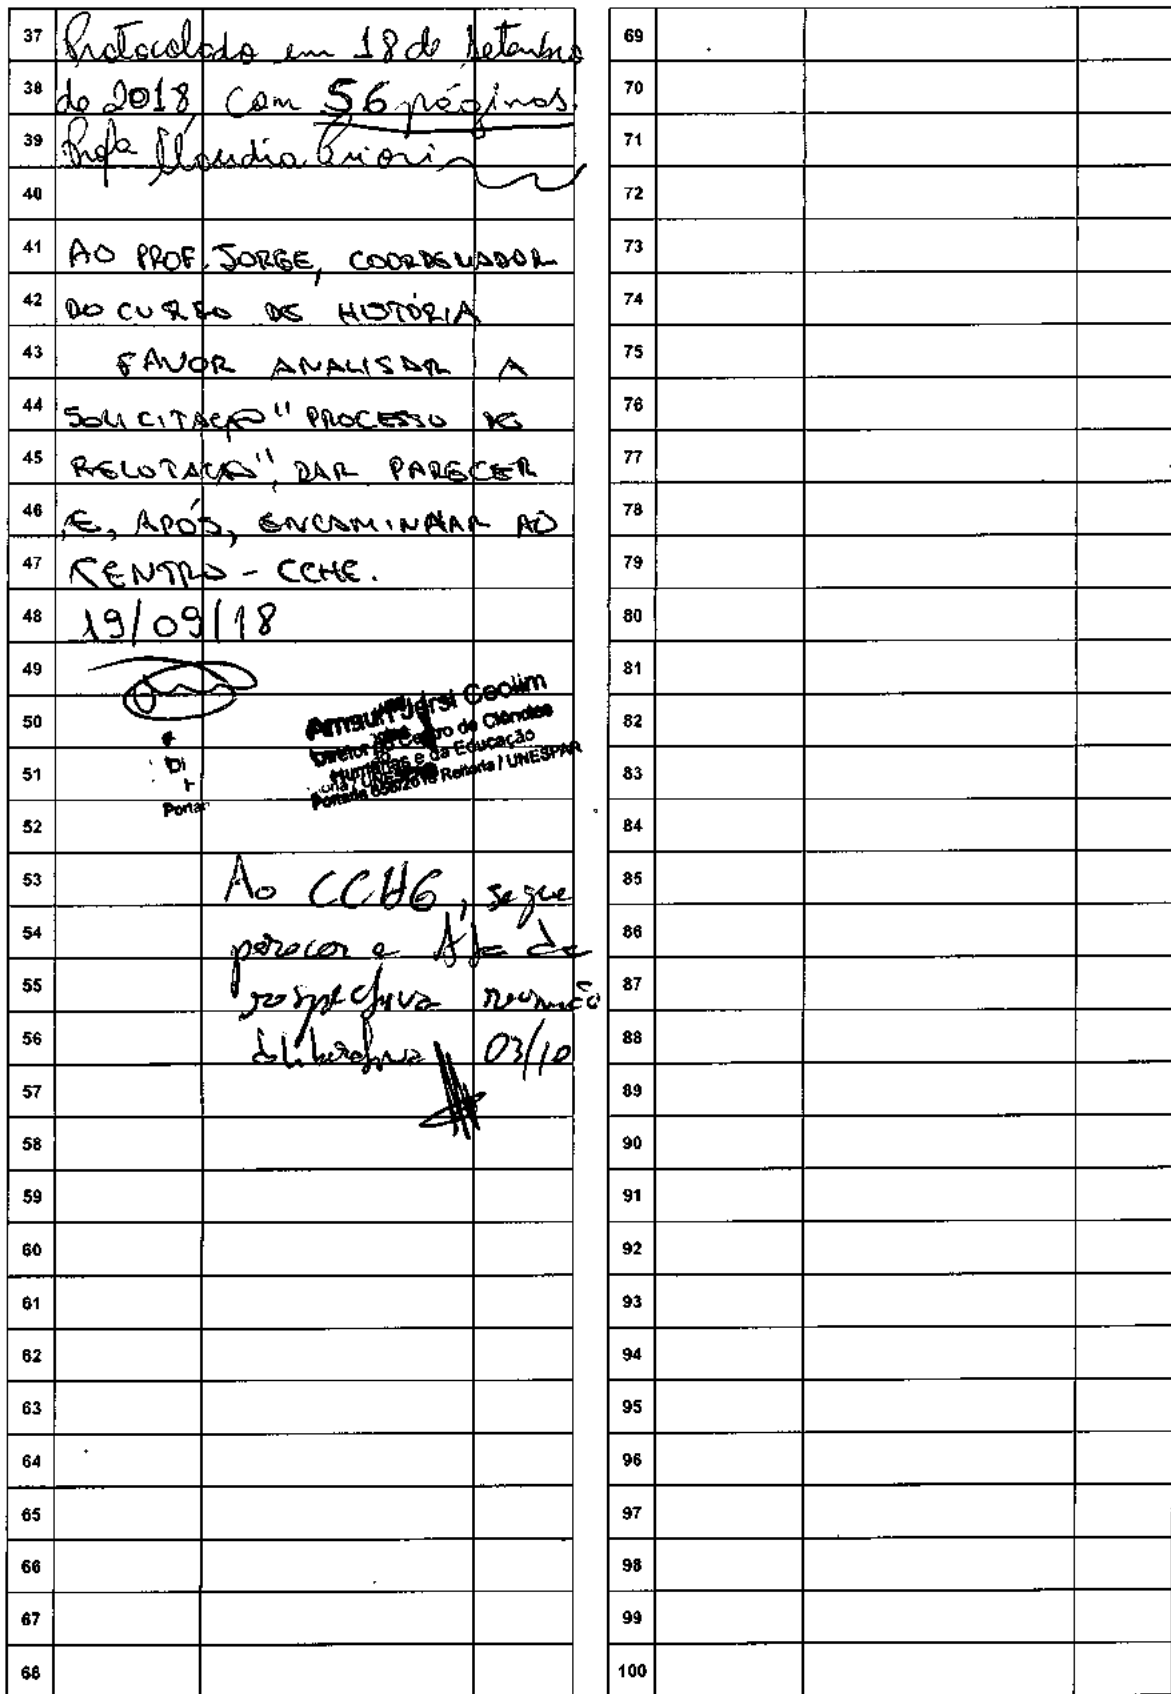 37 Protocolado em 18 de Setembro
38 de 2018, com 56 páginas.
39 Profa Claudia Priori
40
41 AO PROF. JORGE, COORDENADOR
42 DO CURSO DE HISTÓRIA
43 FAVOR ANALISAR A
44 SOLICITAÇÃO "PROCESSO DE
45 RELOTAÇÃO", DAR PARECER
46 E, APÓS, ENCAMINHAR AO
47 CENTRO - CCHE.
48 19/09/18
49
50 Diretor do Centro de Ciências
51 Humanas e da Educação
Reitoria / UNESPAR
Portar
52
53 Ao CCHE, segue
54 parecer e Ata da
55 respectiva reunião
56 deliberativa 03/10
57
58
59
60
61
62
63
64
65
66
67
68
69
70
71
72
73
74
75
76
77
78
79
80
81
82
83
84
85
86
87
88
89
90
91
92
93
94
95
96
97
98
99
100